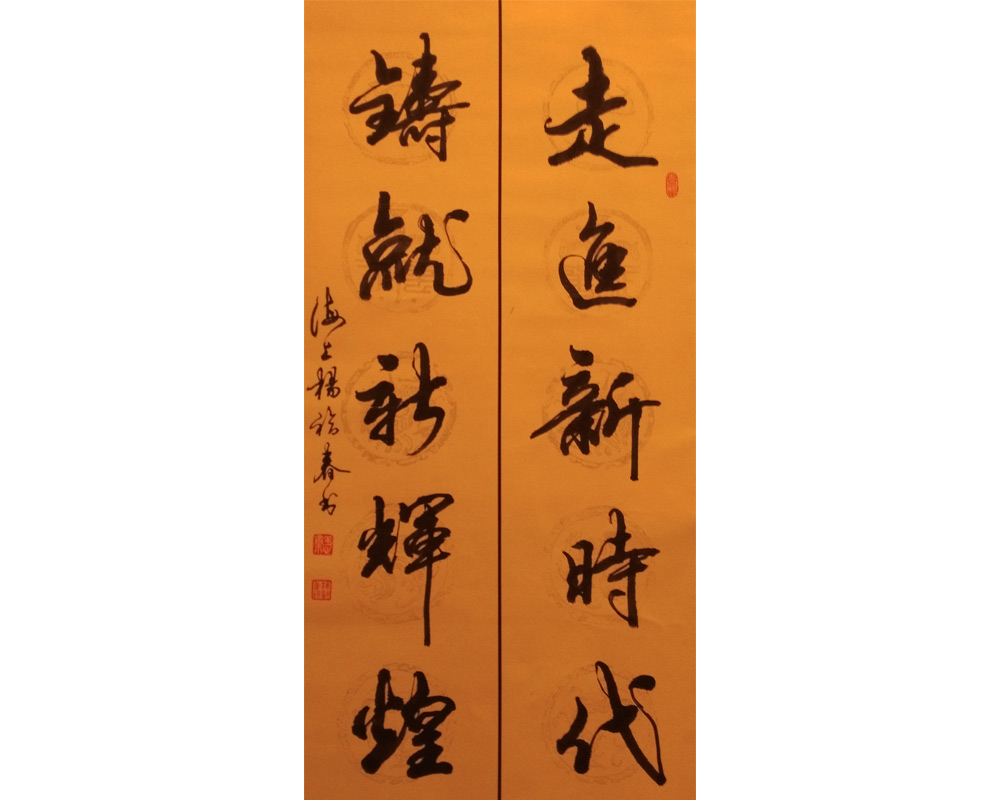 走進新時代
鑄就新輝煌
海上楊福春书